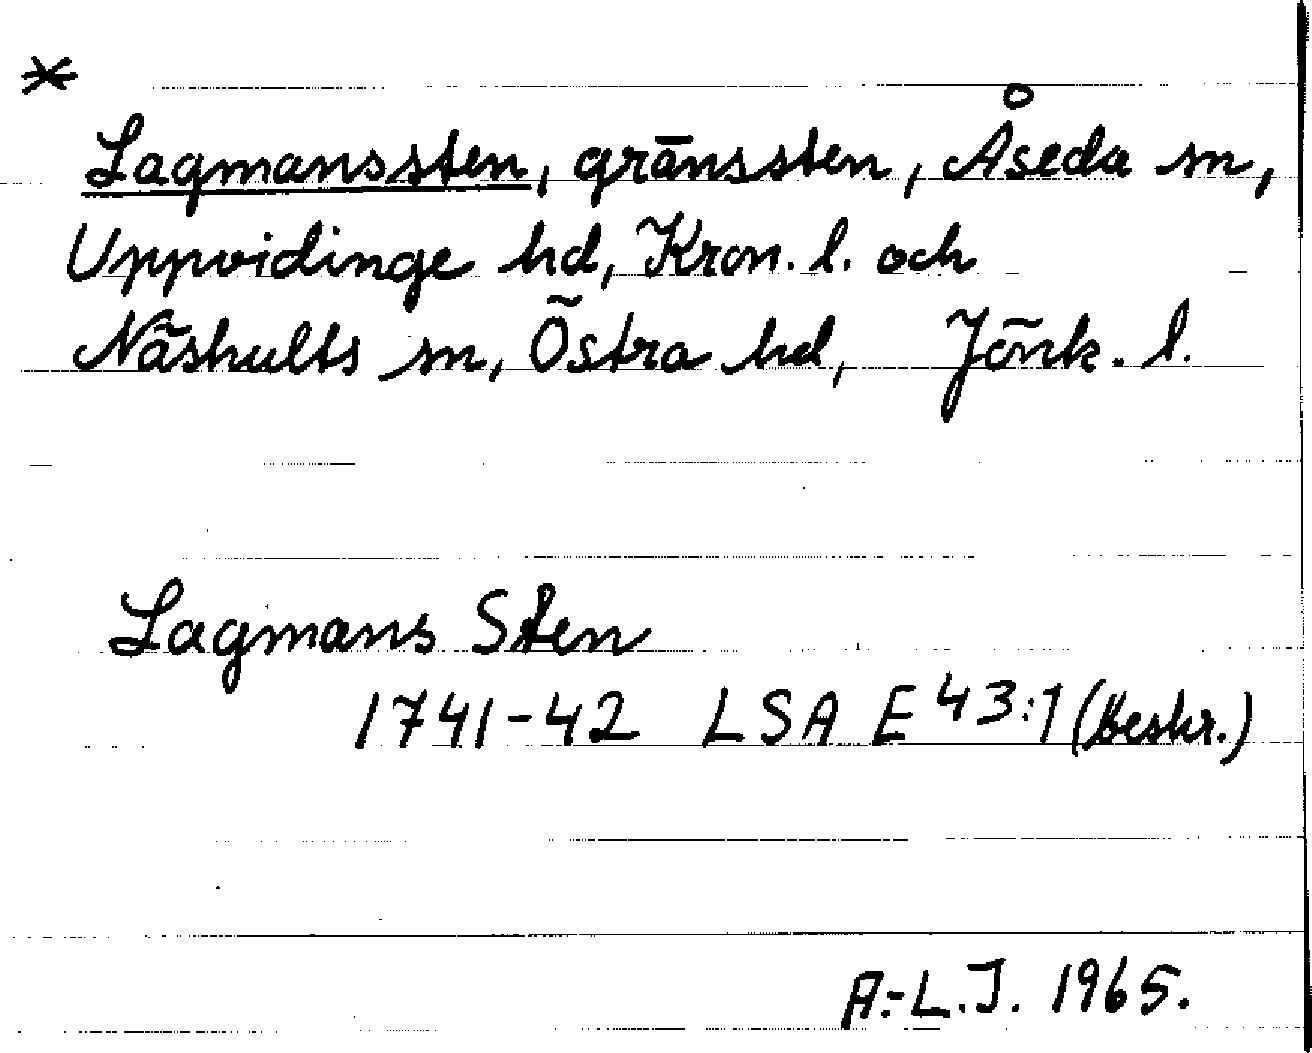 *
Lagmanssten, gränssten, Åseda sn,
Uppvidinge hd, Kron. l. och
Näshults sn, Östra hd, Jönk. l.
Lagmans Sten
1741-42 LSA E 43:1 (Beskr.)
A.-L.J. 1965.